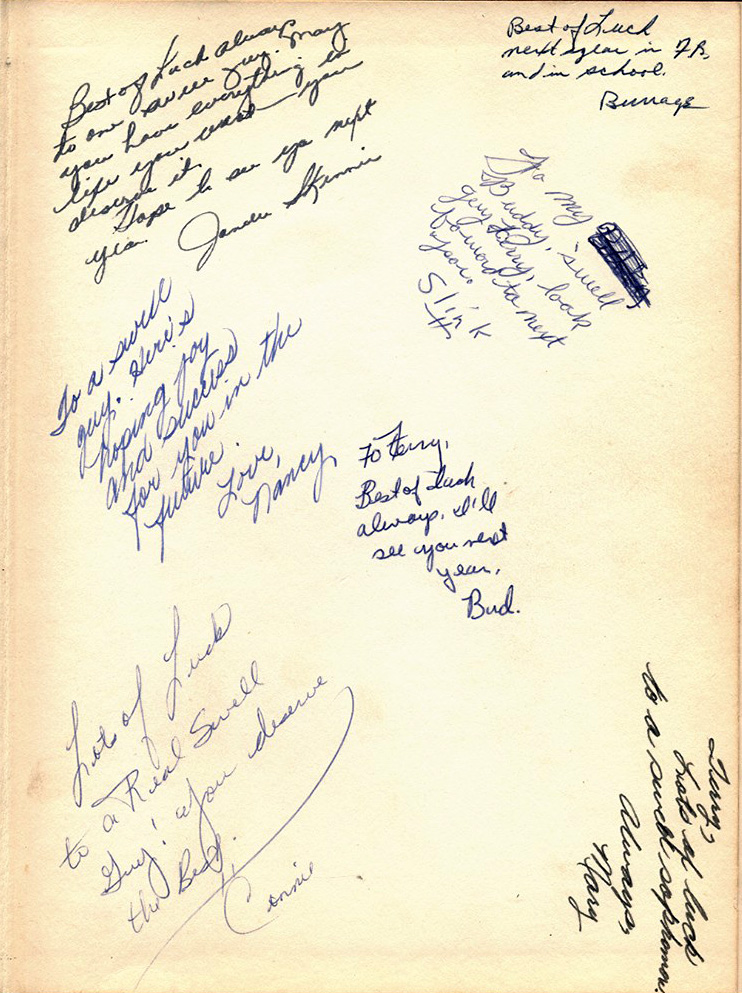 Best of Luck always
to one swell guy. May
you have everything in
life you want you
deserve it.
Hope to see ya next
year.
Best of Luck
next year in FB,
and in school.
Burrage
To my
Buddy, swell
guy Terry, look
forward to next
year.
Slink
To a swell
guy. Here's
hoping joy
and success
for you in the
future.
Love,
Nancy
To Terry,
Best of Luck
always, I'll
see you next
year,
Bud.
Lots of Luck
to a Real Swell
Guy! You deserve
the Best.
Connie
Terry,
Lots of luck
to a swell sophomore.
Always,
Mary